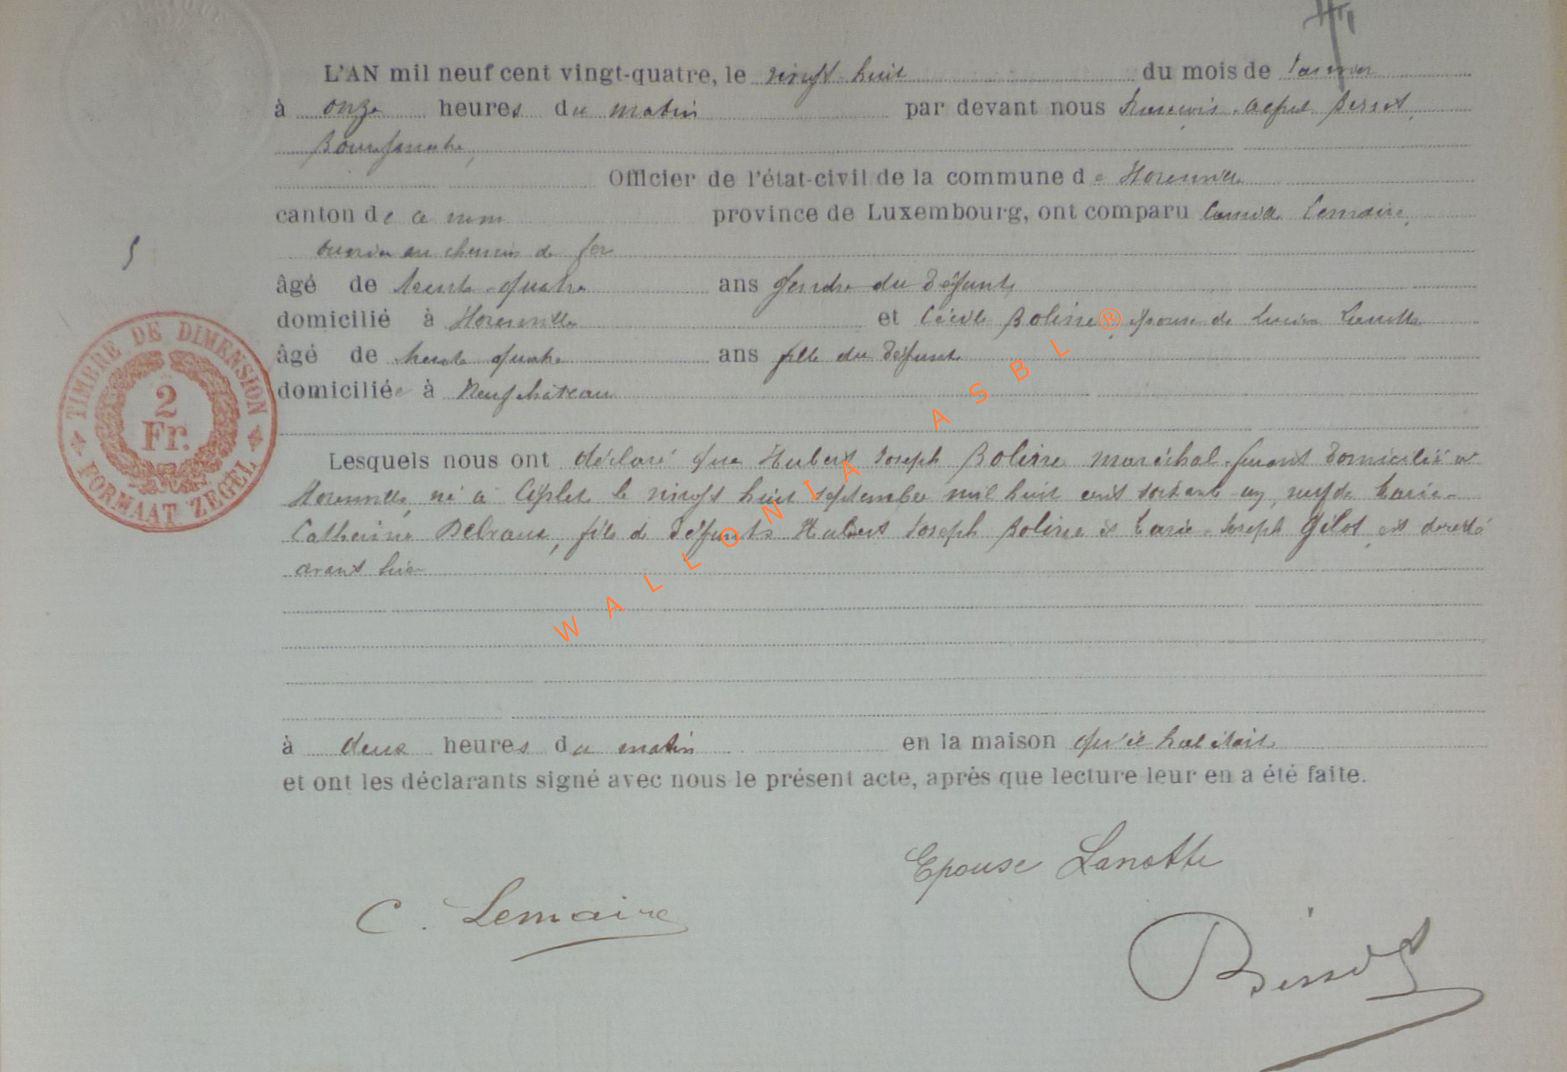 L'AN mil neuf cent vingt-quatre, le vingt huit du mois de Janvier
à onze heures du matin par devant nous François
Bourgmestre,
Officier de l'état-civil de la commune de
canton de province de Luxembourg, ont comparu Camille Lemaire,
ouvrier au chemin de fer
âgé de trente-quatre ans gendre du défunt,
domicilié à et Cécile Bolinne, épouse de Lucien Lanotte
âgé de trente quatre ans fille du défunt
domiciliée à Neufchâteau
Lesquels nous ont déclaré que Hubert Joseph Bolinne maréchal-ferrant domicilié à
né à le vingt huit septembre mil huit cent soixante un, veuf de Marie-
Catherine fils de défunts Hubert Joseph Bolinne et Marie-Joseph Gilot, est décédé
avant hier
à deux heures du matin en la maison qu'il habitait
et ont les déclarants signé avec nous le présent acte, après que lecture leur en a été faite.
Epouse Lanotte
C. Lemaire
TIMBRE DE DIMENSION
2
Fr.
FORMAAT ZEGEL
WALLONIA ASBL®